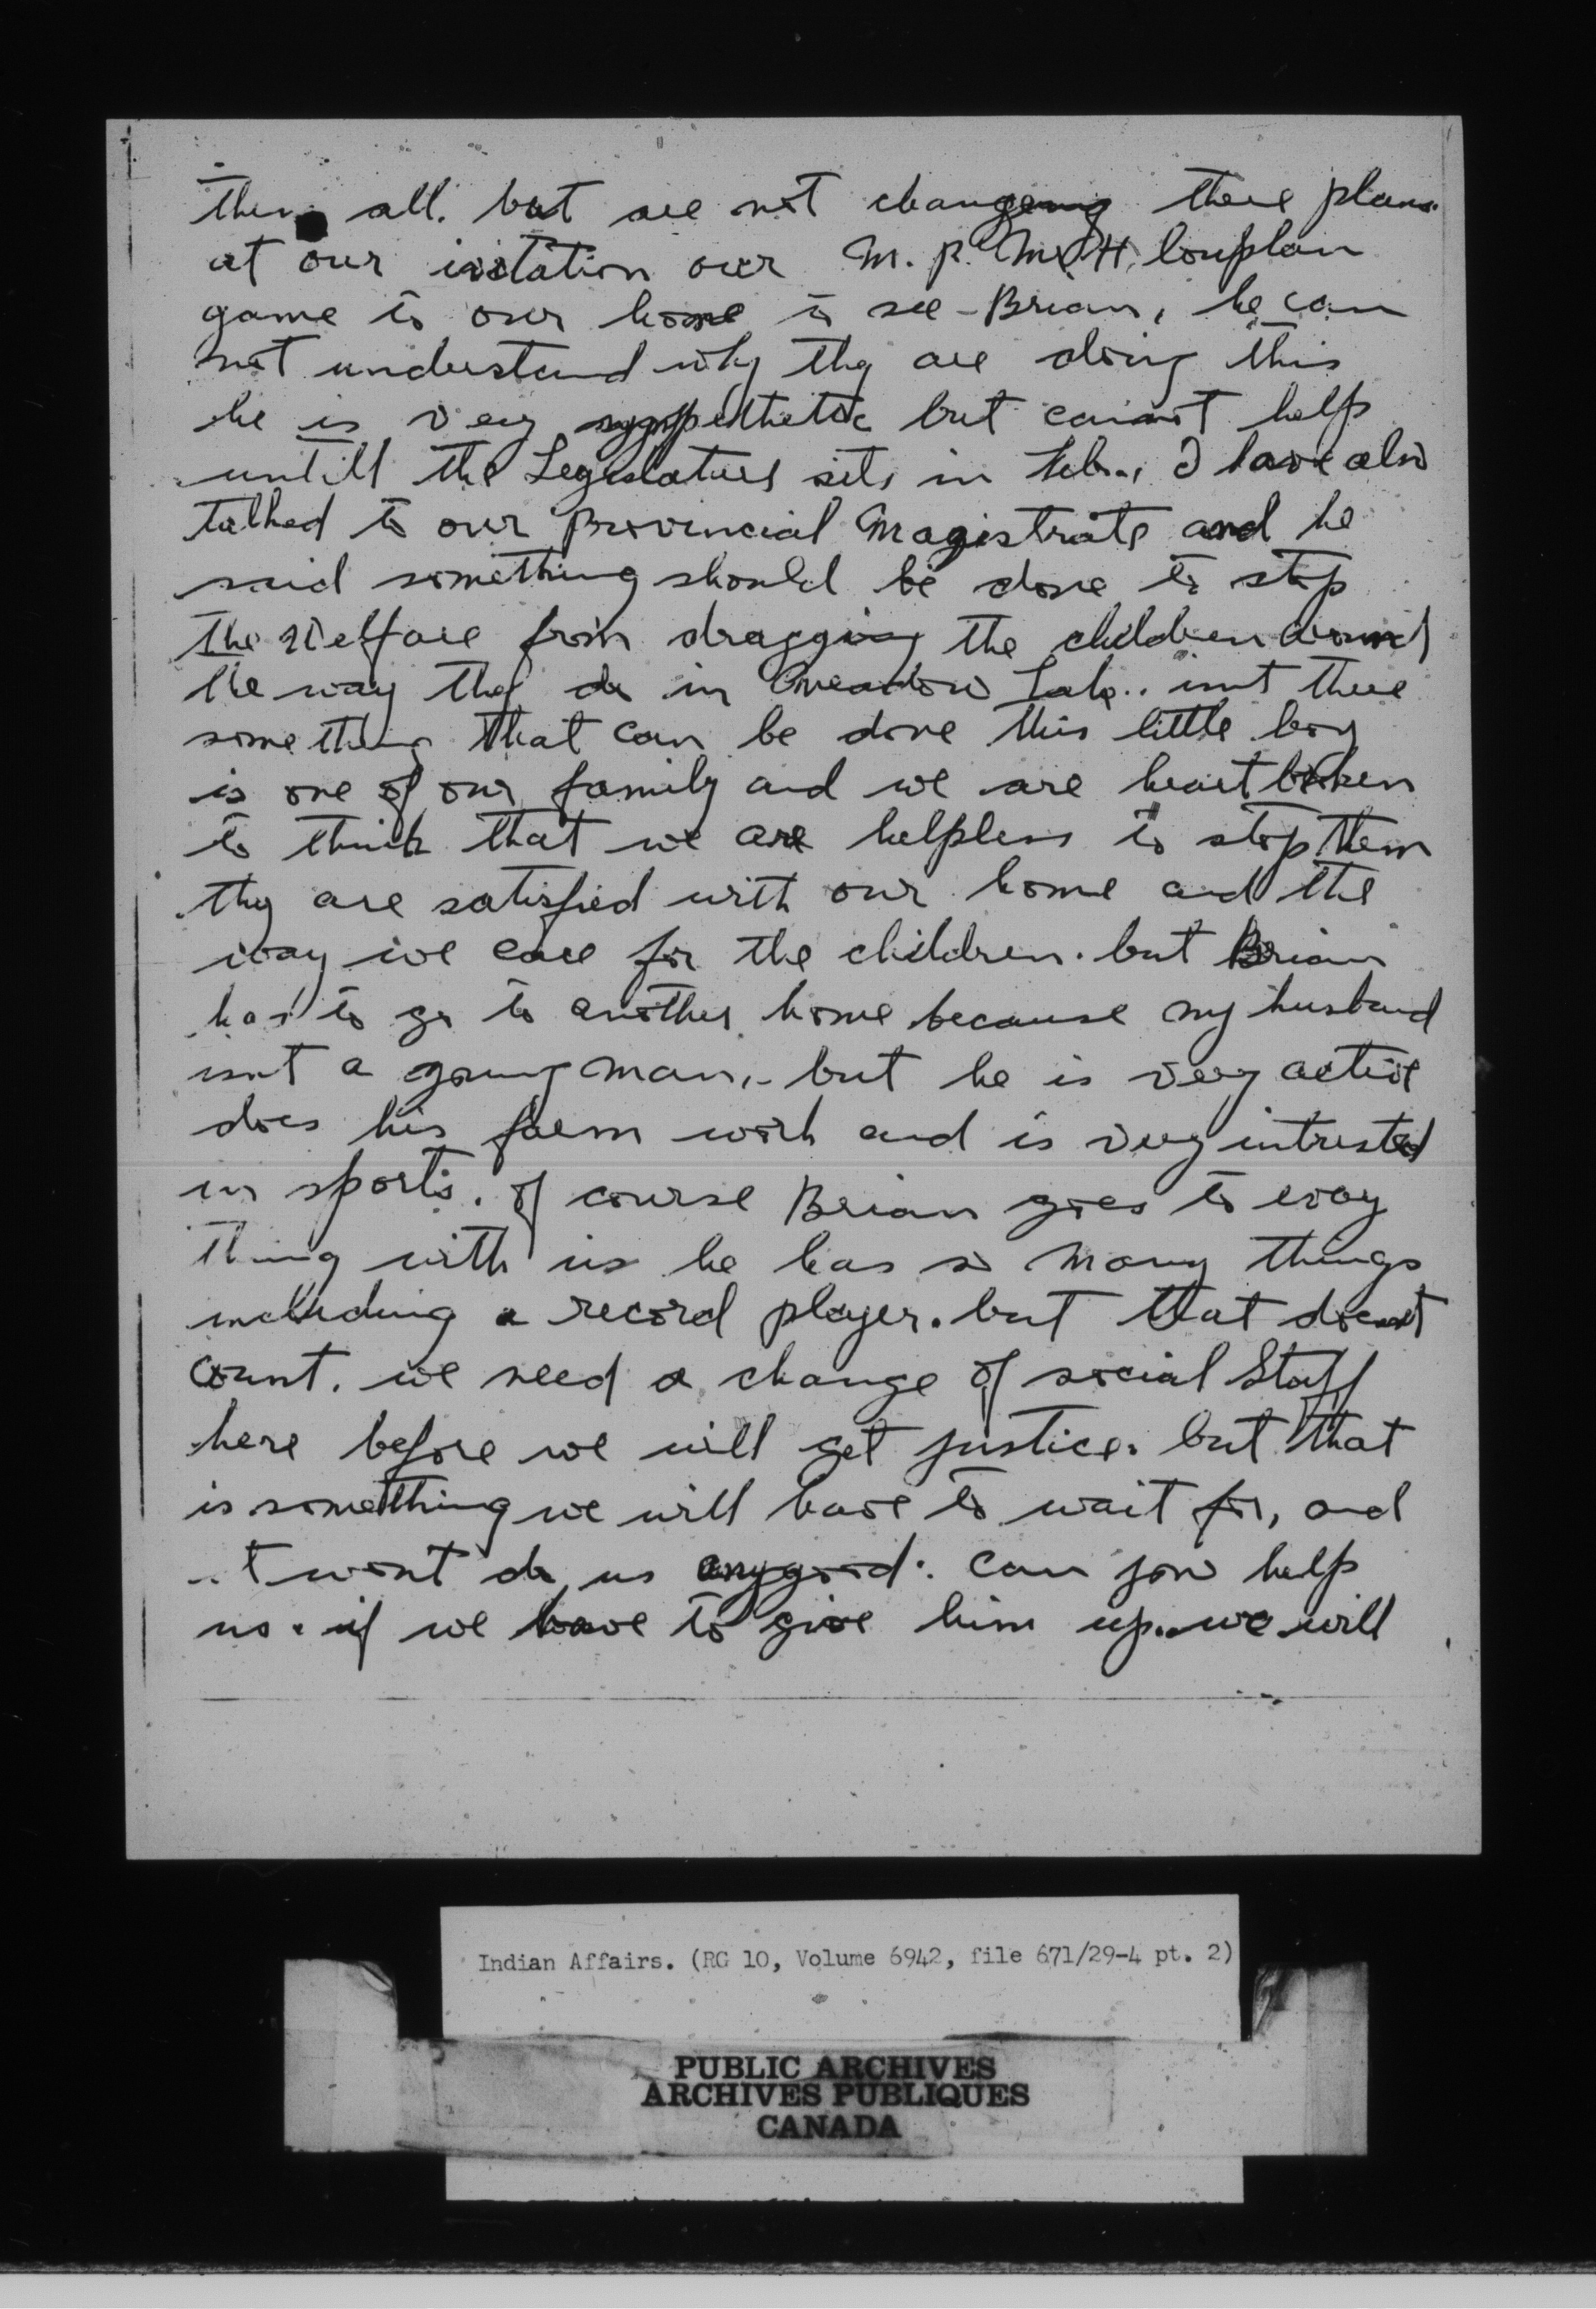 them all. but are not changeing there plans.
at our invitation our M. P. Mr H. Couplan
game to our home to see - Brian, he can
not understand why thy are doing this
he is very sympethetic but cannot help
untill the Legeslatures sits in Feb., I have also
talked to our Provincial Magistrate and he
said something should be done to stop
the Welfare from dragging the children around
the way they do in Meadow Lake.. isnt there
something that can be done this little boy
is one of our family and we are heart broken
to think that we are helpless to stop them
thy are satisfied with our home and the
way we care for the children. but Brian
has to go to another home because my husband
isnt a young man,. but he is very active
does his farm work and is very intrested
in sports. of course Brian goes to every
thing with us he has so many things
including a record player. but that doesnt
count. we need a change of social Staff
here before we will get justice. but that
is something we will have to wait for, and
it wont do us anygood. can you help
us. if we have to give him up.. we will
Indian Affairs. (RG 10, Volume 6942, file 671/29-4 pt. 2)
PUBLIC ARCHIVES
ARCHIVES PUBLIQUES
CANADA